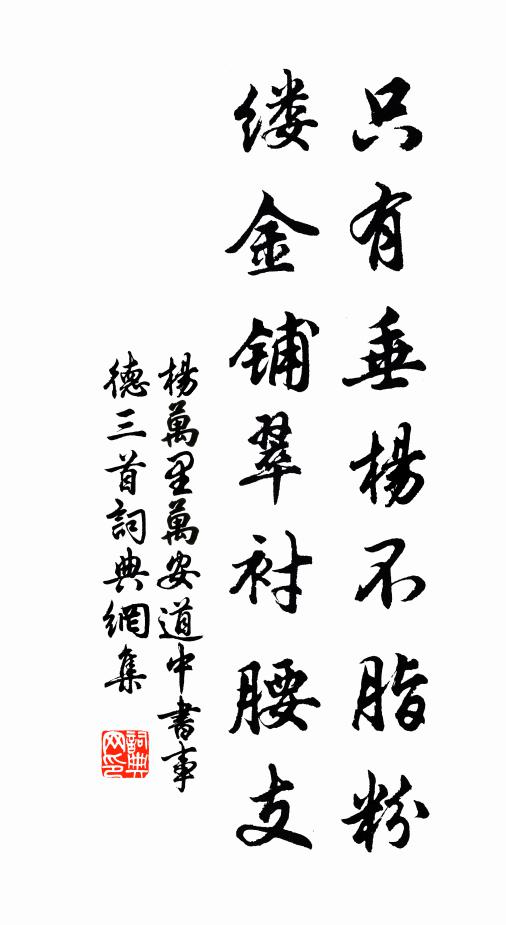 只有垂楊不脂粉
缕金铺翠衬腰支
楊萬里萬安道中書事
德三首詞典網集
詞典网印